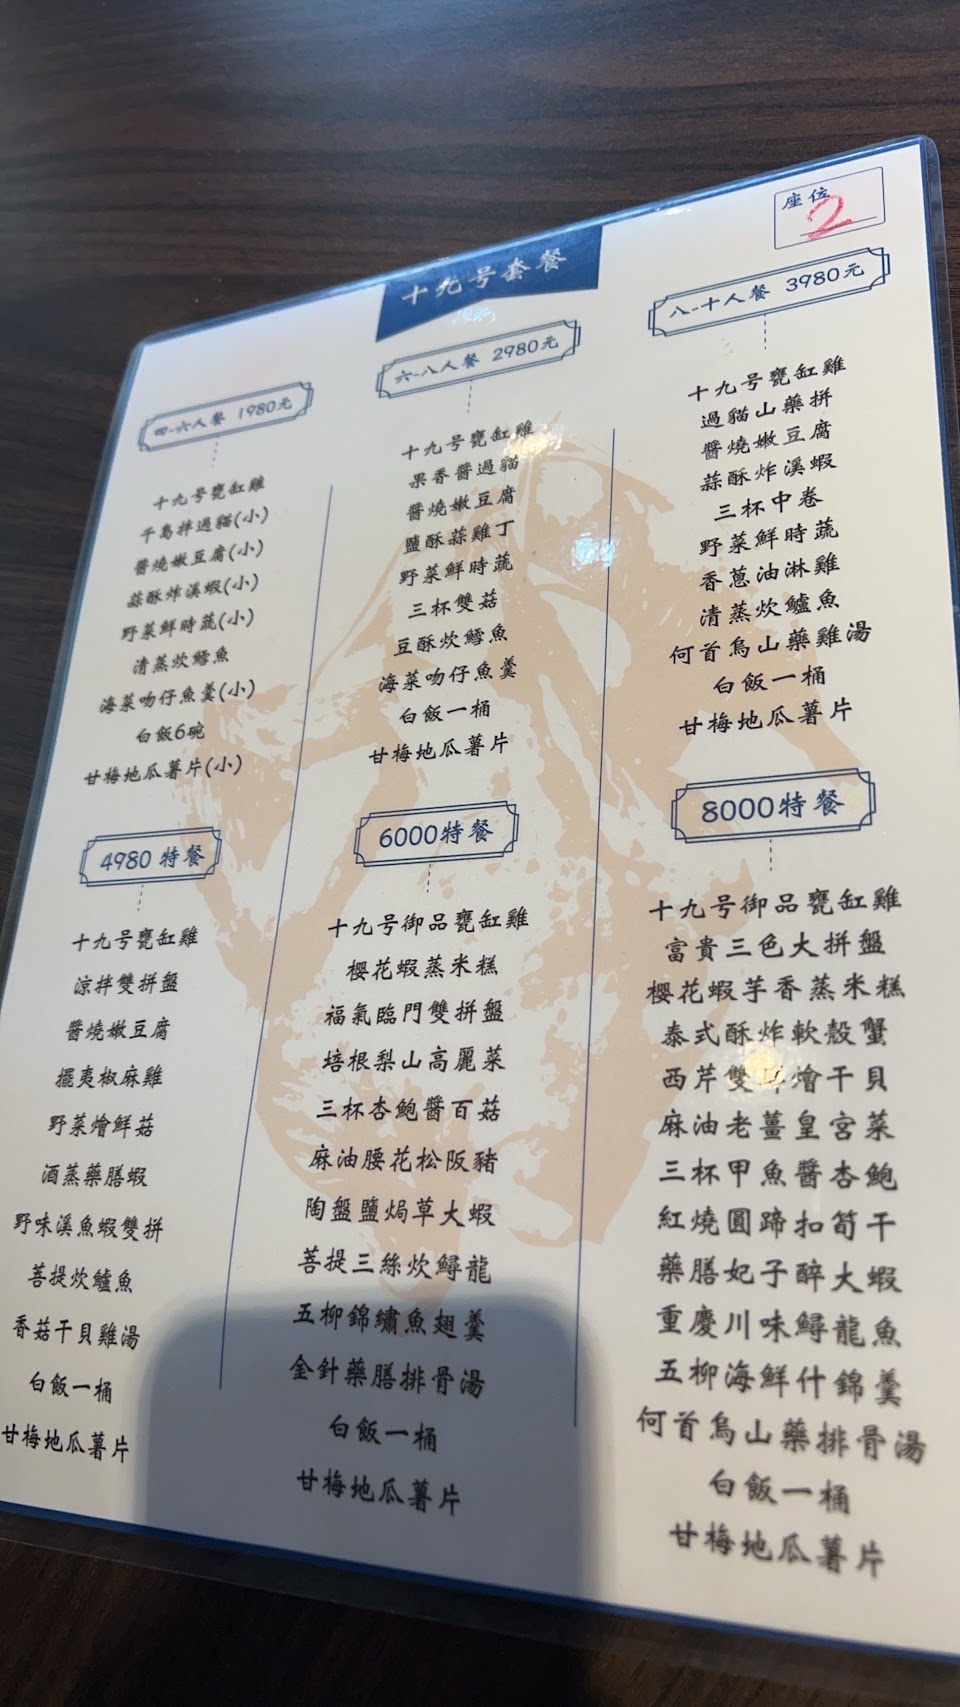 座位
2
十九号套餐
四-六人餐 1980元
十九号甕缸雞
千島拌過貓(小)
醬燒嫩豆腐(小)
蒜酥炸溪蝦(小)
野菜鮮時蔬(小)
清蒸炊鱈魚
海菜吻仔魚羹(小)
白飯6碗
甘梅地瓜薯片(小)
六-八人餐 2980元
十九号甕缸雞
果香醬過貓
醬燒嫩豆腐
鹽酥蒜雞丁
野菜鮮時蔬
三杯雙菇
豆酥炊鱈魚
海菜吻仔魚羹
白飯一桶
甘梅地瓜薯片
八-十人餐 3980元
十九号甕缸雞
過貓山藥拼
醬燒嫩豆腐
蒜酥炸溪蝦
三杯中卷
野菜鮮時蔬
香蔥油淋雞
清蒸炊鱸魚
何首烏山藥雞湯
白飯一桶
甘梅地瓜薯片
4980 特餐
十九号甕缸雞
涼拌雙拼盤
醬燒嫩豆腐
擺夷椒麻雞
野菜燴鮮菇
酒蒸藥膳蝦
野味溪魚蝦雙拼
菩提炊鱸魚
香菇干貝雞湯
白飯一桶
甘梅地瓜薯片
6000特餐
十九号御品甕缸雞
櫻花蝦蒸米糕
福氣臨門雙拼盤
培根梨山高麗菜
三杯杏鮑醬百菇
麻油腰花松阪豬
陶盤鹽焗草大蝦
菩提三絲炊鱘龍
五柳錦繡魚翅羹
金針藥膳排骨湯
白飯一桶
甘梅地瓜薯片
8000特餐
十九号御品甕缸雞
富貴三色大拼盤
櫻花蝦芋香蒸米糕
泰式酥炸軟殼蟹
西芹雙 燴干貝
麻油老薑皇宮菜
三杯甲魚醬杏鮑
紅燒圓蹄扣筍干
藥膳妃子醉大蝦
重慶川味鱘龍魚
五柳海鮮什錦羹
何首烏山藥排骨湯
白飯一桶
甘梅地瓜薯片